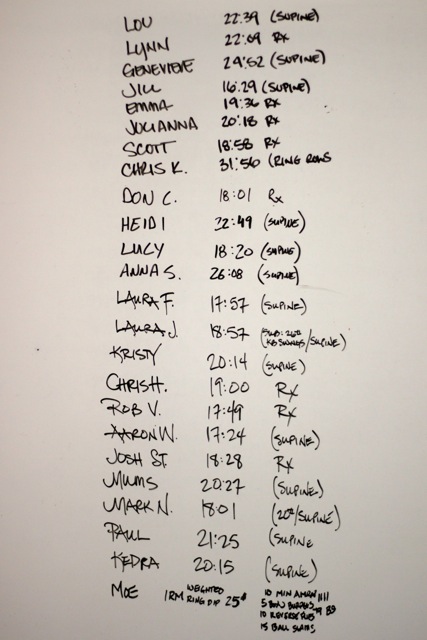 LOU 22:39 (SUPINE)
LYNN 22:09 RX
GENEVIEVE 29:52 (SUPINE)
JILL 16:29 (SUPINE)
EMMA 19:36 RX
JULIANNA 20:18 RX
SCOTT 18:58 RX
CHRIS K. 31:56 (RING ROWS
DON C. 18:01 Rx
HEIDI 22:49 (SUPINE)
LUCY 18:20 (SUPINE)
ANNA S. 26:08 (SUPINE)
LAURA F. 17:57 (SUPINE)
LAURA J. 18:57 (SUB: 26# KB SWINGS/SUPINE)
KRISTY 20:14 (SUPINE)
CHRIS H. 19:00 Rx
ROB V. 17:49 Rx
AARON W. 17:24 (SUPINE)
JOSH ST. 18:28 Rx
MUMS 20:27 (SUPINE)
MARK N. 18:01 (20#/SUPINE)
PAUL 21:25 (SUPINE
KEDRA 20:15 (SUPINE)
MOE 1RM WEIGHTED RING DIP 25# 10 MIN AMRAP IIII
5 BURPEES
10 REVERSE
15 BALL SLAMS